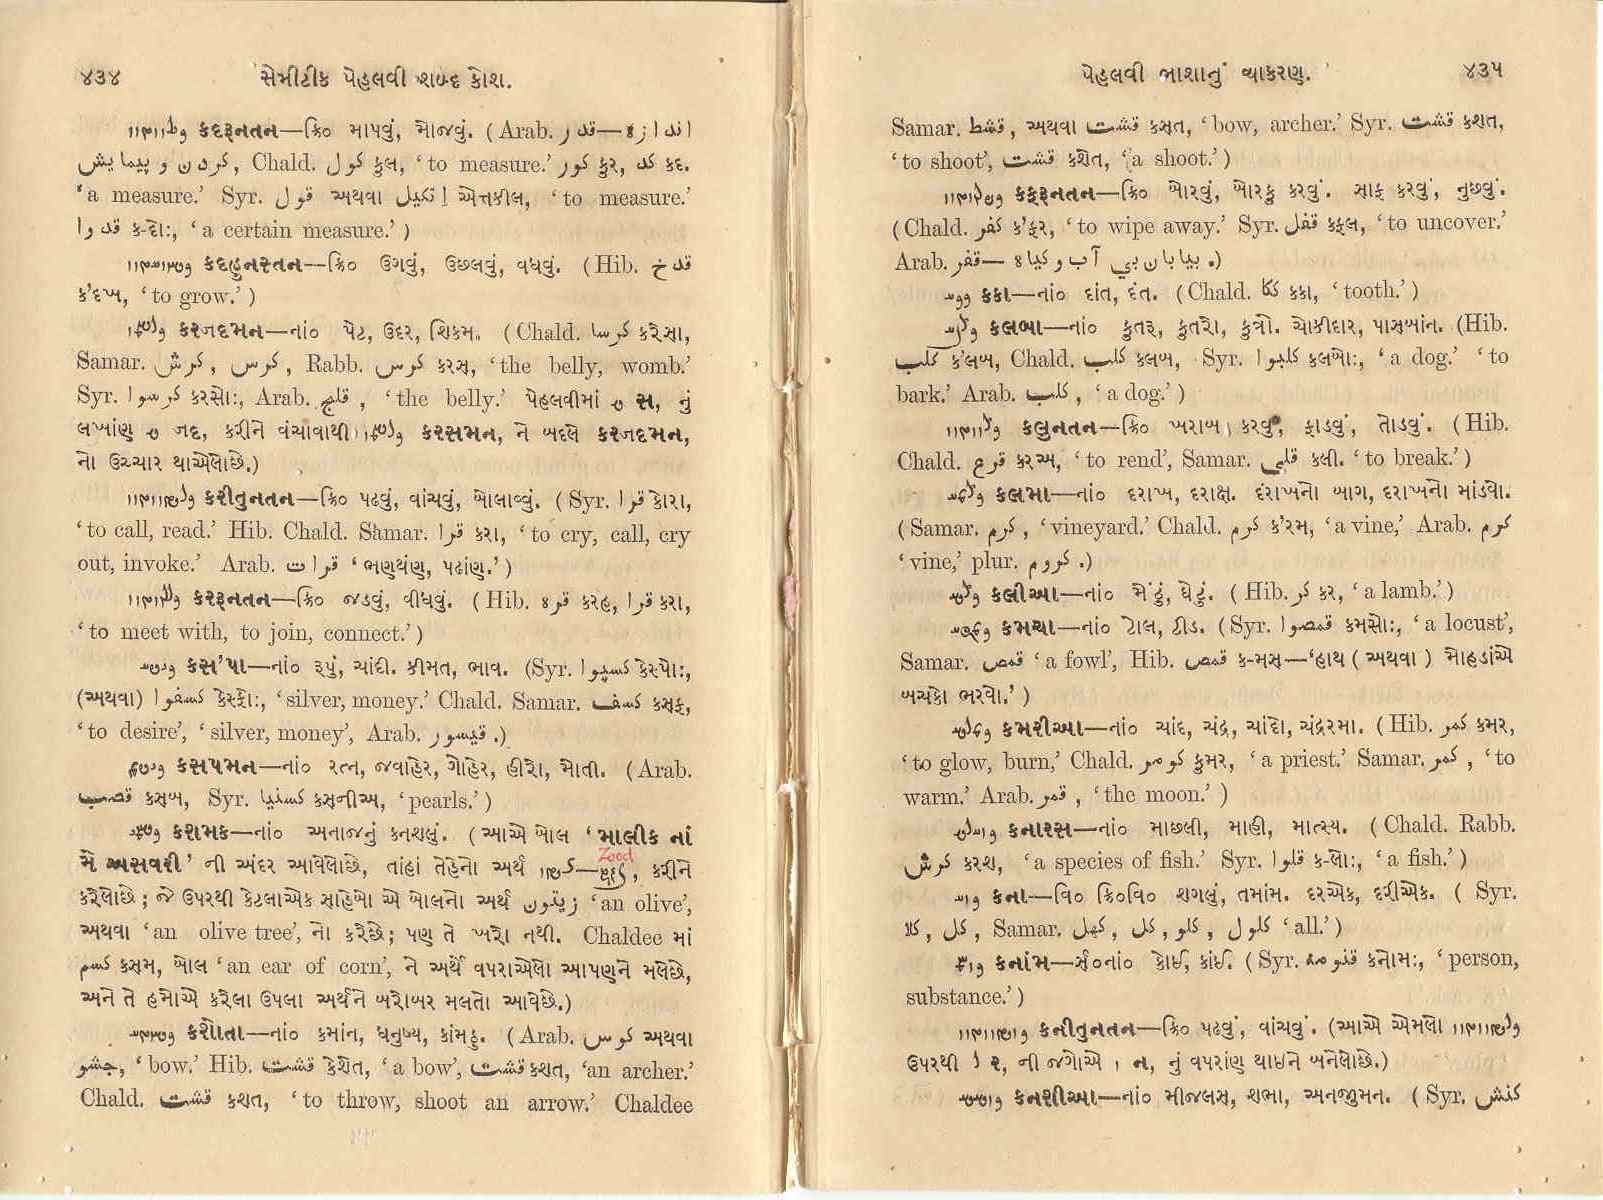 ૪૩૪ સેમીટીક પેહલવી શબ્દ કોશ.
કદરૂનતન—ક્રિ૦ માપવું, મોજવું. (Arab. قدر—اندازه
کردن و پیمایش, Chald. کول કુલ, ‘to measure.’ کور કુર, کد કદ.
‘a measure.’ Syr. قول અથવા اتکیل એત્તકીલ, ‘to measure.’
قدوا ક-દો:, ‘a certain measure.’)
કદહુનસ્તન—ક્રિ૦ ઉગવું, ઉછલવું, વધવું. (Hib. قدخ
ક’દખ, ‘to grow.’)
કરજદમન—નાં૦ પેટ, ઉદર, શિકમ. (Chald. کرسا કરેસા,
Samar. کرش, کرس, Rabb. کرس કરસ, ‘the belly, womb.’
Syr. کرسوا કરસો:, Arab. , ‘the belly.’ પેહલવીમાં સ, નું
લખાંણ જદ, કરીને વંચાવાથી કરસમન, ને બદલે કરજદમન,
નો ઉચ્ચાર થાએલોછે.)
કરીતુનતન—ક્રિ૦ પઢવું, વાંચવું, બોલાવ્વું. (Syr. قرا કોરા,
‘to call, read.’ Hib. Chald. Samar. قرا કરા, ‘to cry, call, cry
out, invoke.’ Arab. قرات ‘ભણથંણ, પઢાંણ.’)
કરરૂનતન—ક્રિ૦ જડવું, વીધવું. (Hib. قره કરહ, قرا કરા,
‘to meet with, to join, connect.’)
કસ’પા—નાં૦ રૂપું, ચાંદી. કીમત, ભાવ. (Syr. کسپوا કેસ્પો:,
(અથવા) کسفوا કેસ્ફો:, ‘silver, money.’ Chald. Samar. کسف કસફ,
‘to desire’, ‘silver, money’, Arab. قیسور.)
કસપમન—નાં૦ રત્ન, જવાહેર, ગોહેર, હીરો, મોતી. (Arab.
قصب કસબ, Syr. کسنیا કસનીઅ, ‘pearls.’)
કશમક—નાં૦ અનાજનું કનશલું. (આએ બોલ ‘માલીક નાં
Zood
મે અસવરી’ ની અંદર આવેલોછે, તાંહાં તેહેનો અર્થ —, કરીને
કરેલોછે; જે ઉપરથી કેટલાએક સાહેબો એ બોલનો અર્થ زیتون ‘an olive’,
અથવા ‘an olive tree’, નો કરેછે; પણ તે ખરો નથી. Chaldee માં
کسم કસમ, બોલ ‘an ear of corn’, ને અર્થે વપરાએલો આપણને મલેછે,
અને તે હમોએ કરેલા ઉપલા અર્થને બરોબર મલતો આવેછે.)
કશોતા—નાં૦ કમાંન, ધનુષ્ય, કાંમઠુ. (Arab. کوس અથવા
جشو, ‘bow.’ Hib. قشت કેશેત, ‘a bow’, قشت કશત, ‘an archer.’
Chald. قشت કશત, ‘to throw, shoot an arrow.’ Chaldee
પેહલવી ભાશાનું વ્યાકરણ. ૪૩૫
Samar. قشط, અથવા قشت કસત, ‘bow, archer.’ Syr. قشت કશત,
‘to shoot’, قشت કશેત, ‘a shoot.’)
કફરૂનતન—ક્રિ૦ બોરવું, બોરકુ કરવું. સાફ કરવું, નુછવું.
(Chald. کفر ક’ફર, ‘to wipe away.’ Syr. قفل કફલ, ‘to uncover.’
Arab. قفر—بیابان بي آب و کیاه.)
કકા—નાં૦ દાંત, દંત. (Chald. ککا કકા, ‘tooth.’)
કલબા—નાં૦ કુતરૂ, કુતરો, કુત્રો. ચોકીદાર, પાસબાંન. (Hib.
کلب ક’લબ, Chald. کلب કલબ, Syr. کلبوا કલબો:, ‘a dog.’ ‘to
bark.’ Arab. کلب, ‘a dog.’)
કલુનતન—ક્રિ૦ ખરાબ કરવું, ફાડવું, તોડવું. (Hib.
Chald. قرع કરઅ, ‘to rend’, Samar. قلي કલી. ‘to break.’)
કલમા—નાં૦ દરાખ, દરાક્ષ. દરાખનો બાગ, દરાખનો માંડવો.
(Samar. کرم, ‘vineyard.’ Chald. کرم ક’રમ, ‘a vine,’ Arab. کرم
‘vine,’ plur. کروم.)
કલીઆ—નાં૦ મેંઢું, ઘેટું. (Hib. کر કર, ‘a lamb.’)
કમચા—નાં૦ ટોલ, ટીડ. (Syr. قمصوا કમસો:, ‘a locust’,
Samar. قمص ‘a fowl’, Hib. قمص ક-મસ—‘હાથ (અથવા) મોહડાંએ
બચકો ભરવો.’)
કમરીઆ—નાં૦ ચાંદ, ચંદ્ર, ચાંદો, ચંદ્રમા. (Hib. کمر કમર,
‘to glow, burn,’ Chald. کومر કુમર, ‘a priest.’ Samar. کمر, ‘to
warm.’ Arab. قمر, ‘the moon.’)
કનારસ—નાં૦ માછલી, માહી, માત્સ્ય. (Chald. Rabb.
کرش કરશ, ‘a species of fish.’ Syr. قلوا ક-લો:, ‘a fish.’)
કના—વિ૦ ક્રિ૦વિ૦ શગલું, તમાંમ. દરએક, દરીએક. (Syr.
کل, کلا, Samar. کلول, کلو, کل, کهل ‘all.’)
કનાંમ—ર્સ૦નાં૦ કોઈ, કાંઈ. (Syr. قنومه કનોમ:, ‘person,
substance.’)
કનીતુનતન—ક્રિ૦ પઢવું, વાંચવું. (આએ એમલો
ઉપરથી ર, ની જગોએ ન, નું વપરાંણ થાઇને બનેલોછે.)
કનશીઆ—નાં૦ મીજલસ, શભા, અનજીમન. (Syr. کنش